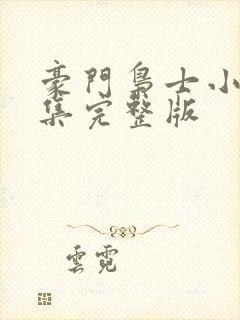 豪門梟士小
集完整版
雲霓